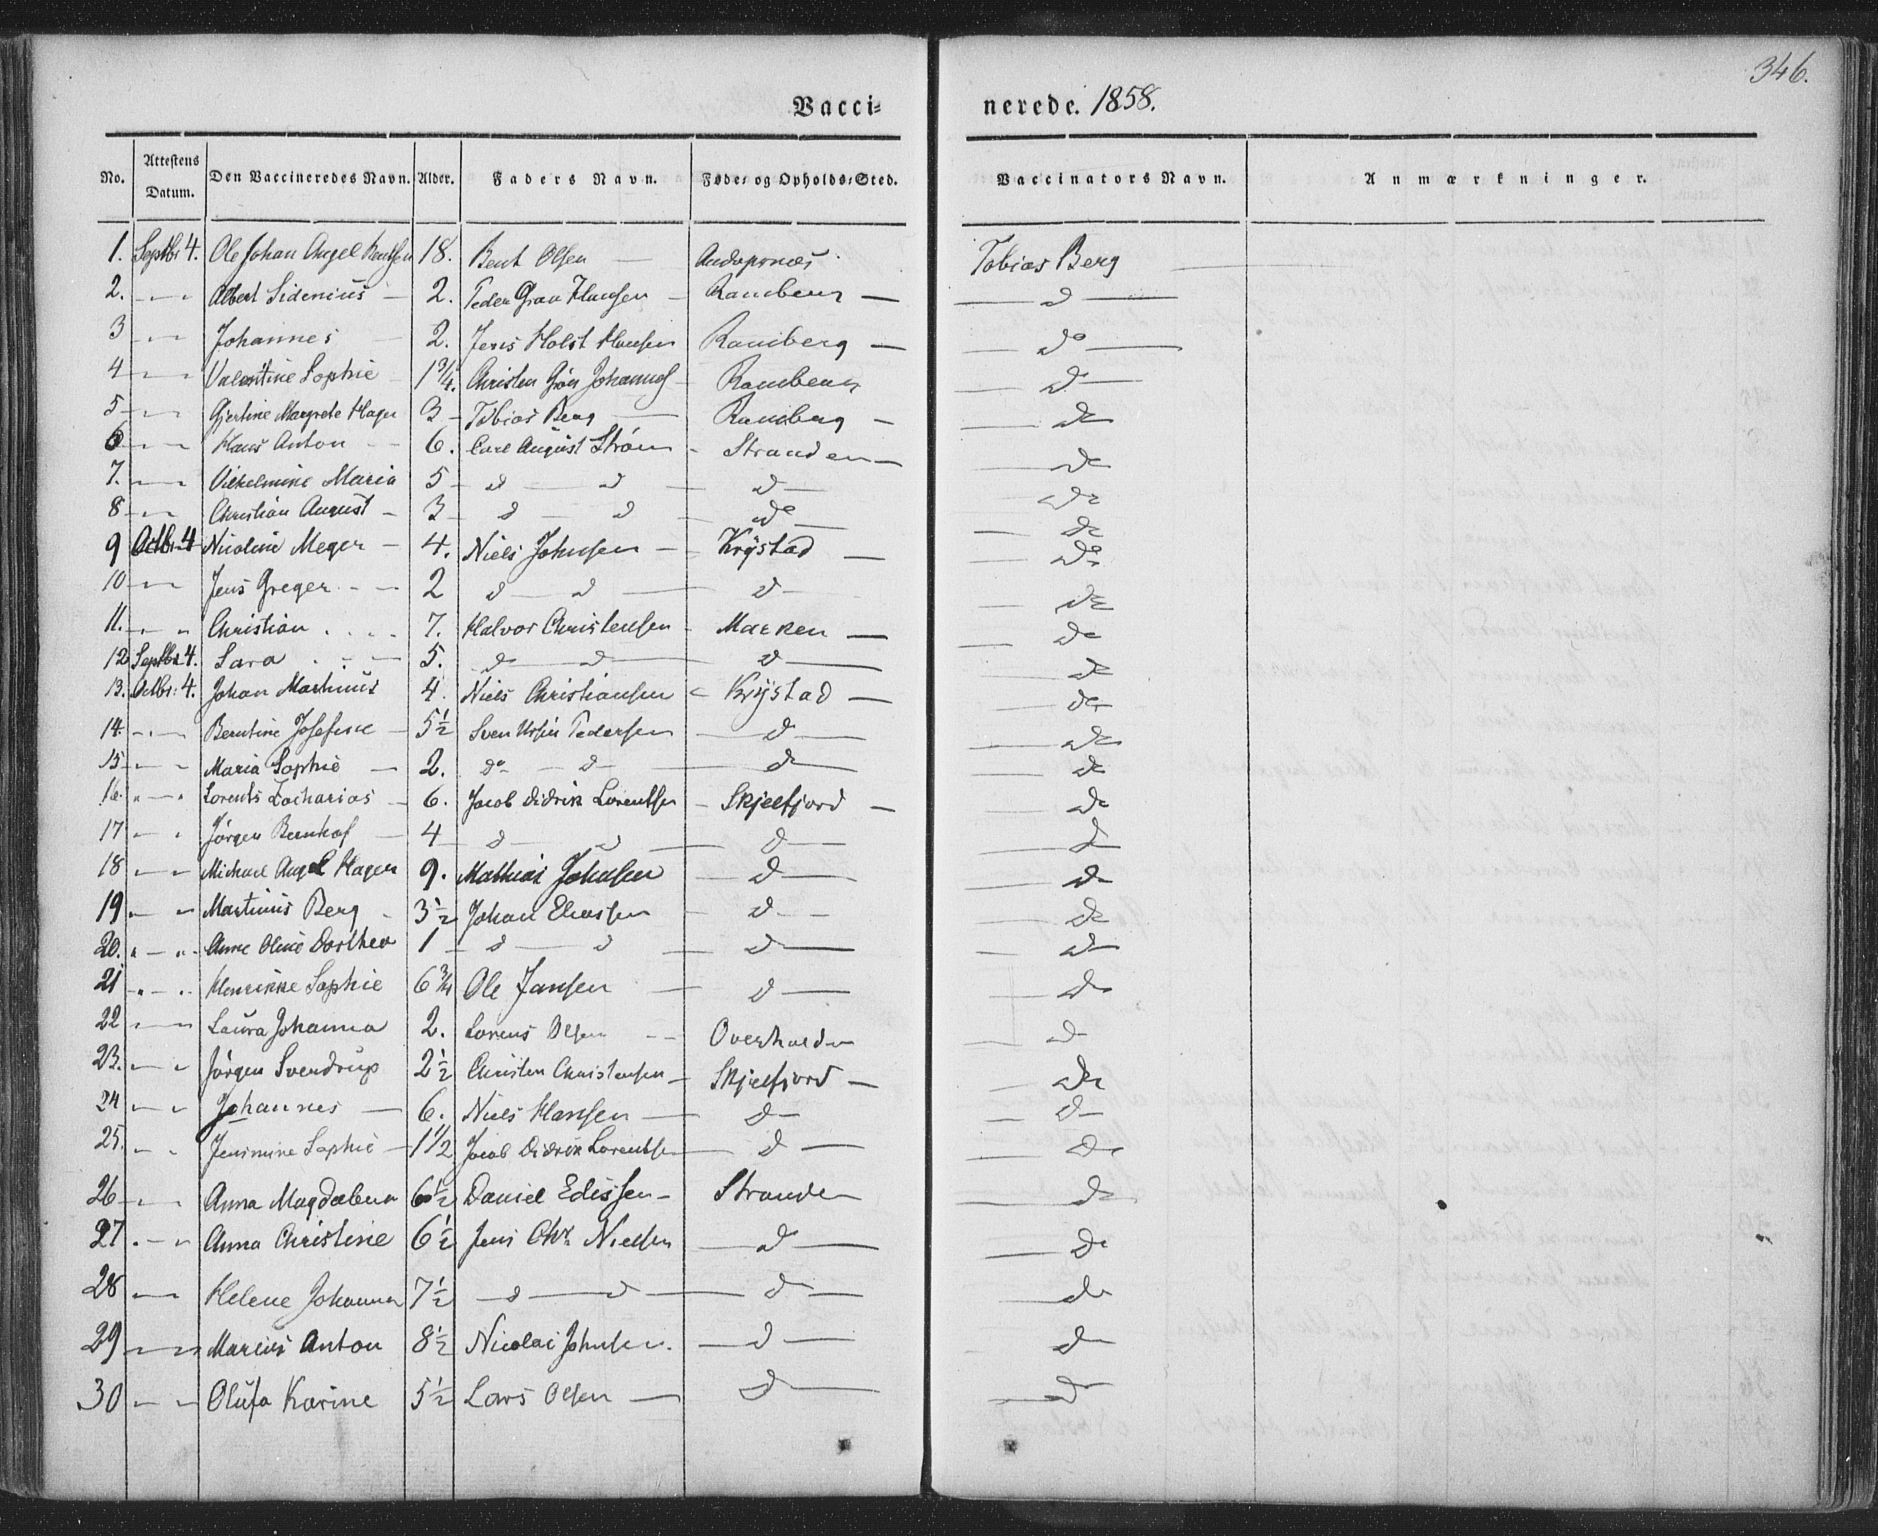 346.
Vacci= nerede. 1858.
No. Attestens Datum. Den Vaccineredes Navn. Alder. Faders Navn. Føde= og Opholds=Sted. Vaccinators Navn. Anmærkninger.
1. Septbr 4. Ole Johan Angel Bentsen 18. Bent Olsen — Tobias Berg
2. — " Albert Sidenius — 2. Peder Grav Hansen — Ramberg — d —
3 — " Johannes — 2. Jens Holst Hansen Ramberg — — do —
4 — " Valentine Sophie 1 3/4. Christen Johannes Ramberg — d —
5 — " Gjertine Margrete Hager 3 — Tobias Berg — Ramberg — — do
6 — " Hans Anton — 6. Carl August Strøm - Stranden — — do
7. — " Vilhelmine Maria 5 — d — d — d — — do
8 — " Christian August — 3 — d d — do — — do
9 Octbr 4 Nicoline Meyer — 4. Niels Johnsen — Krystad — — do
10 — " Jens Greger - — 2 d — d — d — — do
11. — " Christian . . . . 7. Halvor Christensen - Marken — — do
12 Septbr 4. Sara . — — 5. do — d — d — — do
13. Octbr: 4. Johan Martinus 4. Niels Christiansen - Krystad — — do
14. — " Berntine Josefine — 5 1/2 Sven Ursin Pedersen — d — — do
15 — " Maria Sophie — 2. do — d — — do — — do
16. " — " Lorents Zacharias — 6. Jacob Didrik Lorentsen — Skjelfjord — — do
17 — " Jørgen Bernhof — 4 — d — d — d — — d —
18 — " Michael Angel Hagen 9. Mathias Johnsen — d — — do
19 — " Martinus Berg - 3 1/2 Johan Eliassen — d — — — do
20. " — " Anne Oline Dorthea 1 — d — d — d — — do
21 " — " Henrikke Sophie 6 3/4 Ole Jansen — d — — do
22 — " Laura Johanna 2. Lorens Olsen — — d —
23. — " Jørgen Sverdrup 2 1/2 Christen Christensen — Skjelfjord — — do
24 — " Johannes — 6. Niels Hansen — d — — d —
25. — " Jensmine Sophie — 1 1/2 Jacob Didrik Lorentsen — d — — do
26 — " Anna Magdalena 6 1/2 Daniel Edissen — Stranden — do
27 . — " Anna Christine 6 1/2 Jens Chr. Nielsen — d — — do
28 — " Helene Johanna 7 1/2 — d — d — d — — do
29 — " Marius Anton 8 1/2 Nicolai Johnsen. — d — — do
30 — " Olufa Karine 5 1/2 Lars Olsen — — d — — d —